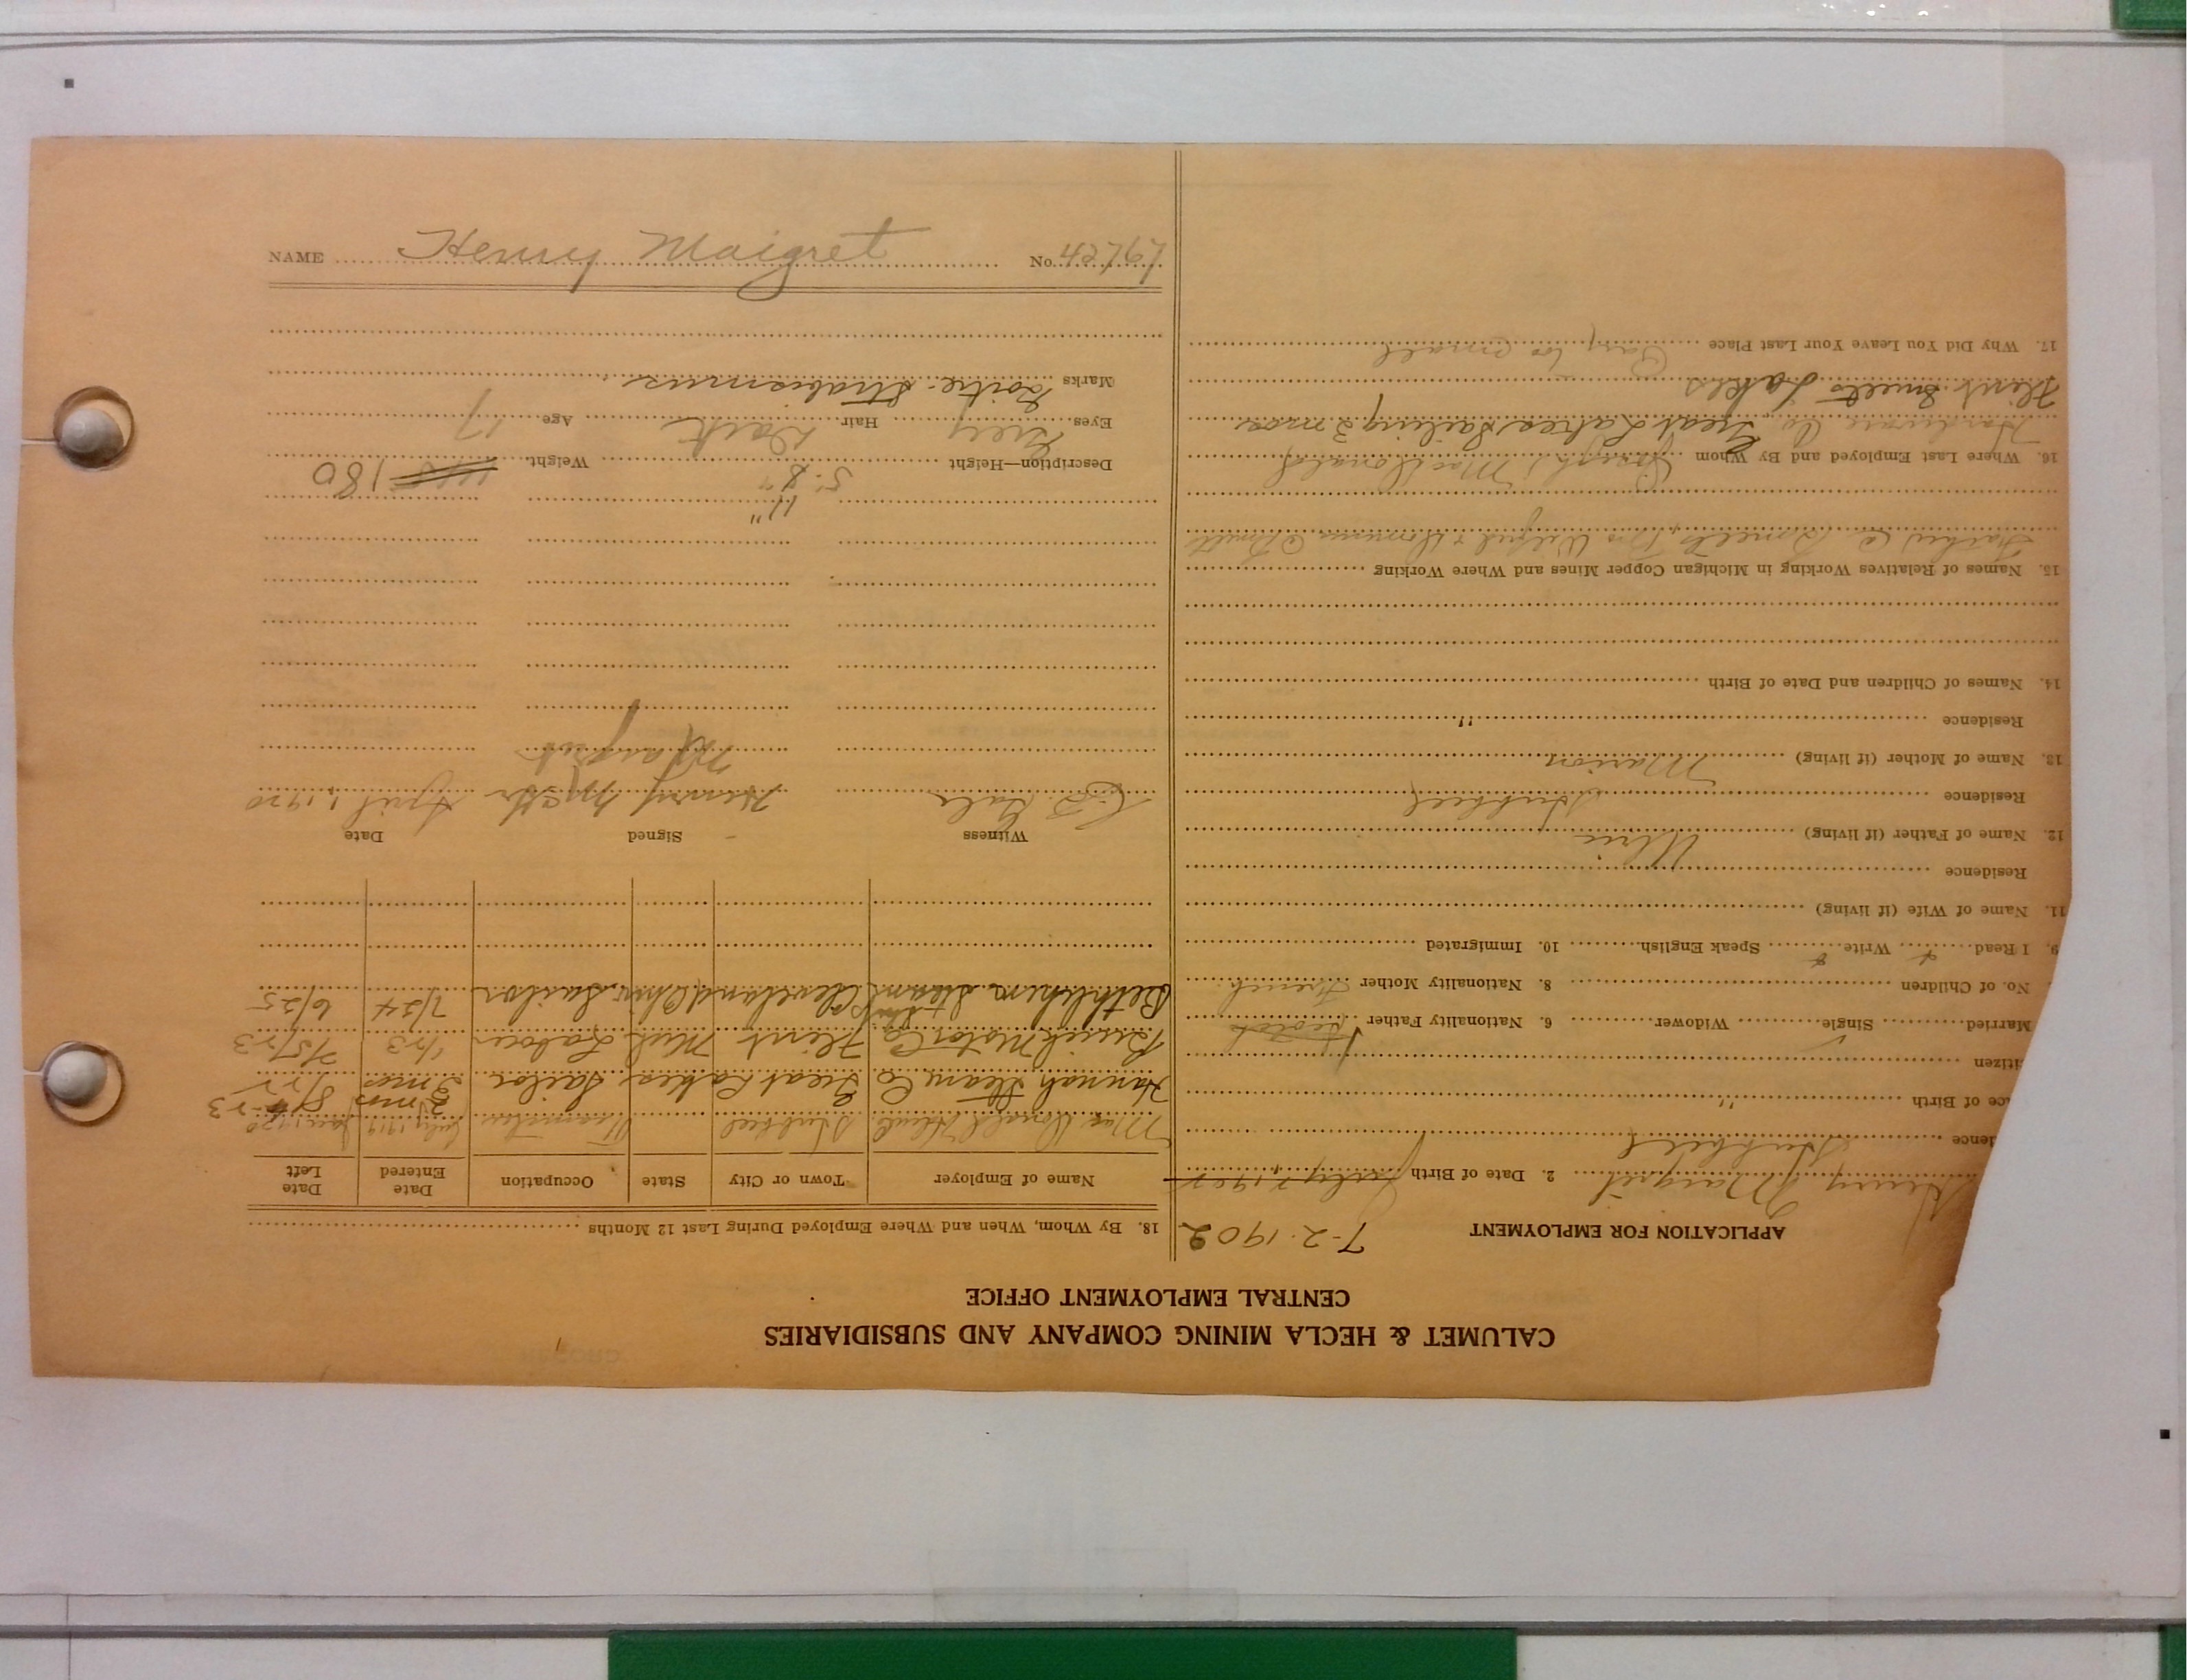 NAME Henry Maigret No. 42767
CALUMET & HECLA MINING COMPANY AND SUBSIDIARIES
CENTRAL EMPLOYMENT OFFICE
APPLICATION FOR EMPLOYMENT 7-2-1902
Henry Maigret 2. Date of Birth July 2 1902
dence Hubbell
ce of Birth "
itizen
Married Single Widower 6. Nationality Father
No. of Children 8. Nationality Mother French
9. I Read Write Speak English 10. Immigrated
11. Name of Wife (if living)
Residence
12. Name of Father (if living)
Residence Hubbell
13. Name of Mother (if living) Marion
Residence "
14. Names of Children and Date of Birth
15. Names of Relatives Working in Michigan Copper Mines and Where Working
Father
16. Where Last Employed and By Whom Joseph MacDonald
Hardware Co. Great Lakes Sailing 2 mos
Flint Lakes
17. Why Did You Leave Your Last Place Pay too small
18. By Whom, When and Where Employed During Last 12 Months
Name of Employer Town or City State Occupation Date Entered Date Left
MacDonald Hubbell Teamster July 1919 Jan 1920
Hannah Steam Co Great Lakes Sailor 2 mos
3 mos
Buick Motor Co Flint Mich Laborer 1/23
Bethlehem Steam Cleveland Ohio Sailor 7/24 6/25
Witness Signed Date
Henry Maigret April 1, 1920
Description—Height 5. 8" 11" Weight 180
Eyes Grey Hair Dark Age 17
Marks Goitre - Strabismus